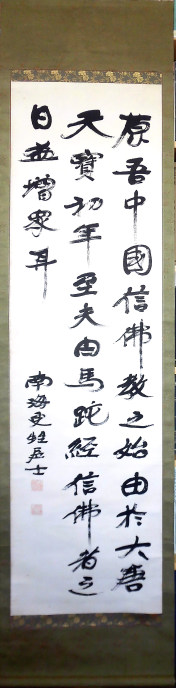 原吾中國信佛教之始由於大唐
天寶初年至夫由馬跎經信佛者之
日益增眾耳
南海更生居士